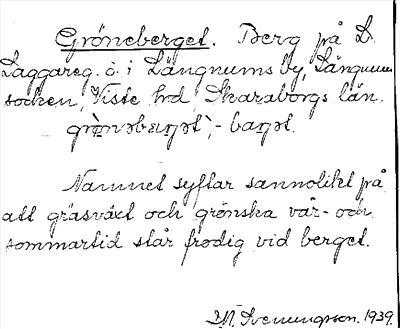 Gröneberget. Berg på L.
Laggareg. ö. i Längnums by, Längnums
socken, Viste hd, Skaraborgs län.
Namnet syftar sannolikt på
att gräsväxt och grönska vår- och
sommartid står frodig vid berget.
Svenungsson. 1939.